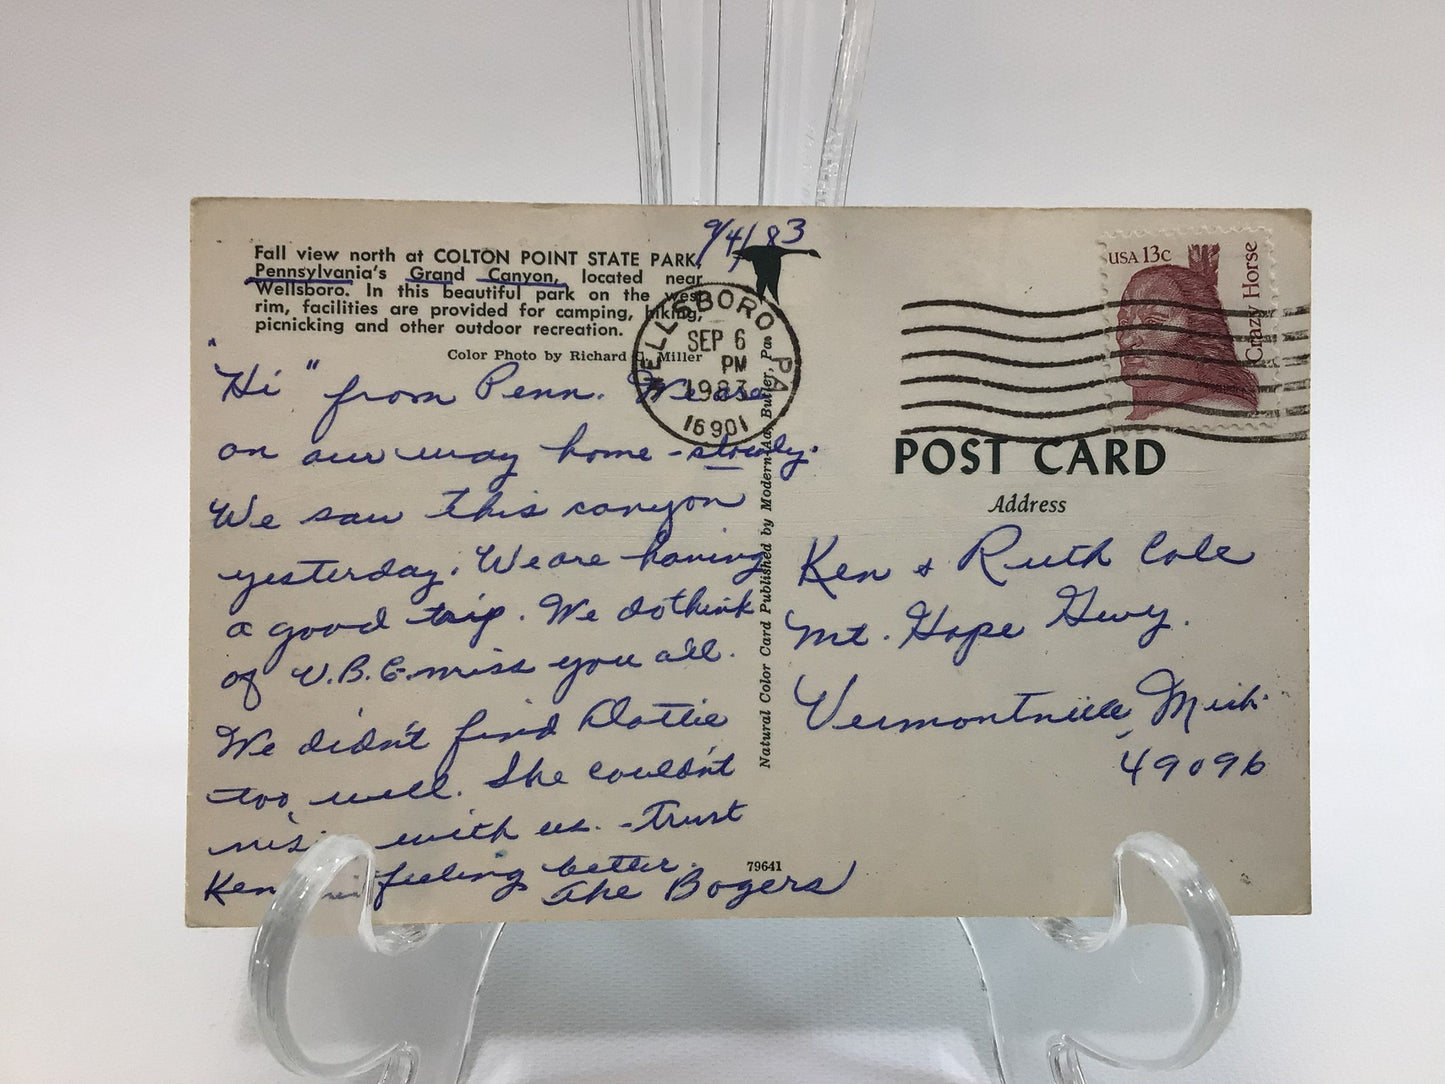 9/4/83
Fall view north at COLTON POINT STATE PARK,
Pennsylvania's Grand Canyon, located near
Wellsboro. In this beautiful park on the west
rim, facilities are provided for camping, hiking,
picnicking and other outdoor recreation.
Color Photo by Richard Miller
WELLSBORO PA
SEP 6
PM
1983
16901
"Hi" from Penn. We are
on our way home - slowly.
We saw this canyon
yesterday. We are having
a good trip. We do think
of V.B.C. miss you all.
We didn't find Dottie
too well. She couldn't
with us. - Trust
Ken feeling better.
The Bogers
Natural Color Card Published by Modern-Ad, Butler, Pa.
79641
USA 13c
Crazy Horse
POST CARD
Address
Ken & Ruth Cole
Mt. Hope Hwy.
Vermontville, Mich.
49096